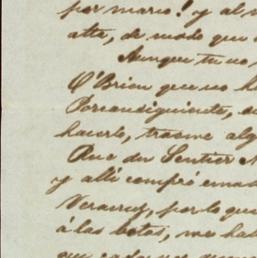 por marco! y al
atta, de modo que
Aunque tu no
O'Brien que no ha
Porconsiguiente,
hacerlo, trasme alg
Rue du Sentier
y allí compré
Veracruz, por lo que
á las botas, me ha
que